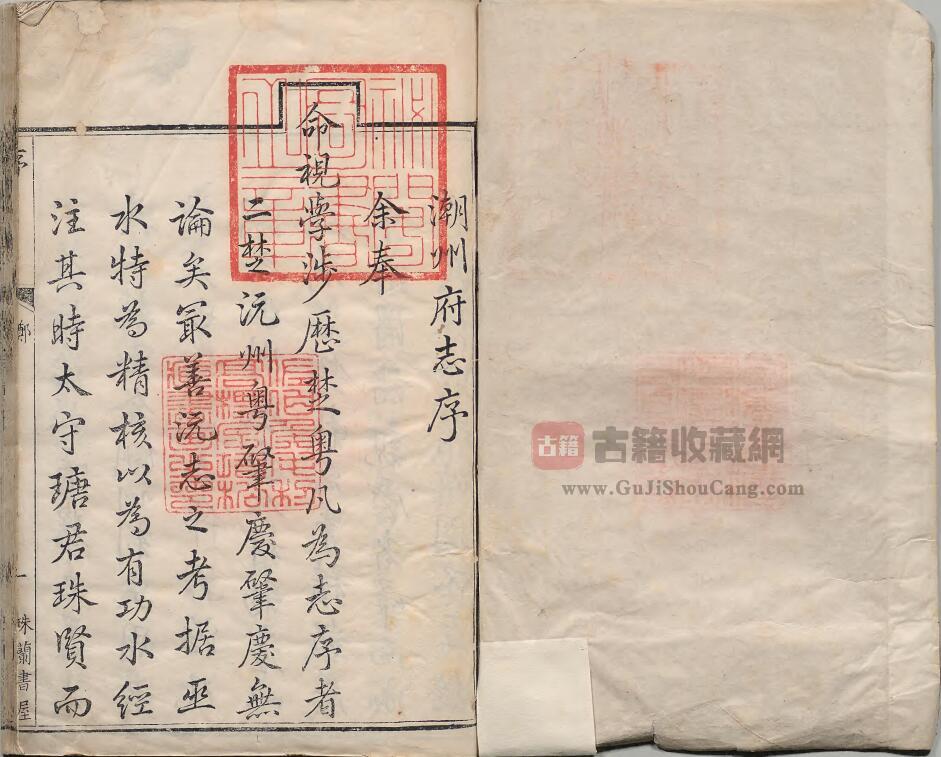 潮州府志序
余奉
命視學涉歷楚粵凡為志序者
二楚沅州粵肇慶肇慶無
論矣冣善沅志之考据巫
水特為精核以為有功水經
注其時太守瑭君珠賢而
一
珠蘭書屋
古籍
古籍收藏網
www.GuJiShouCang.com